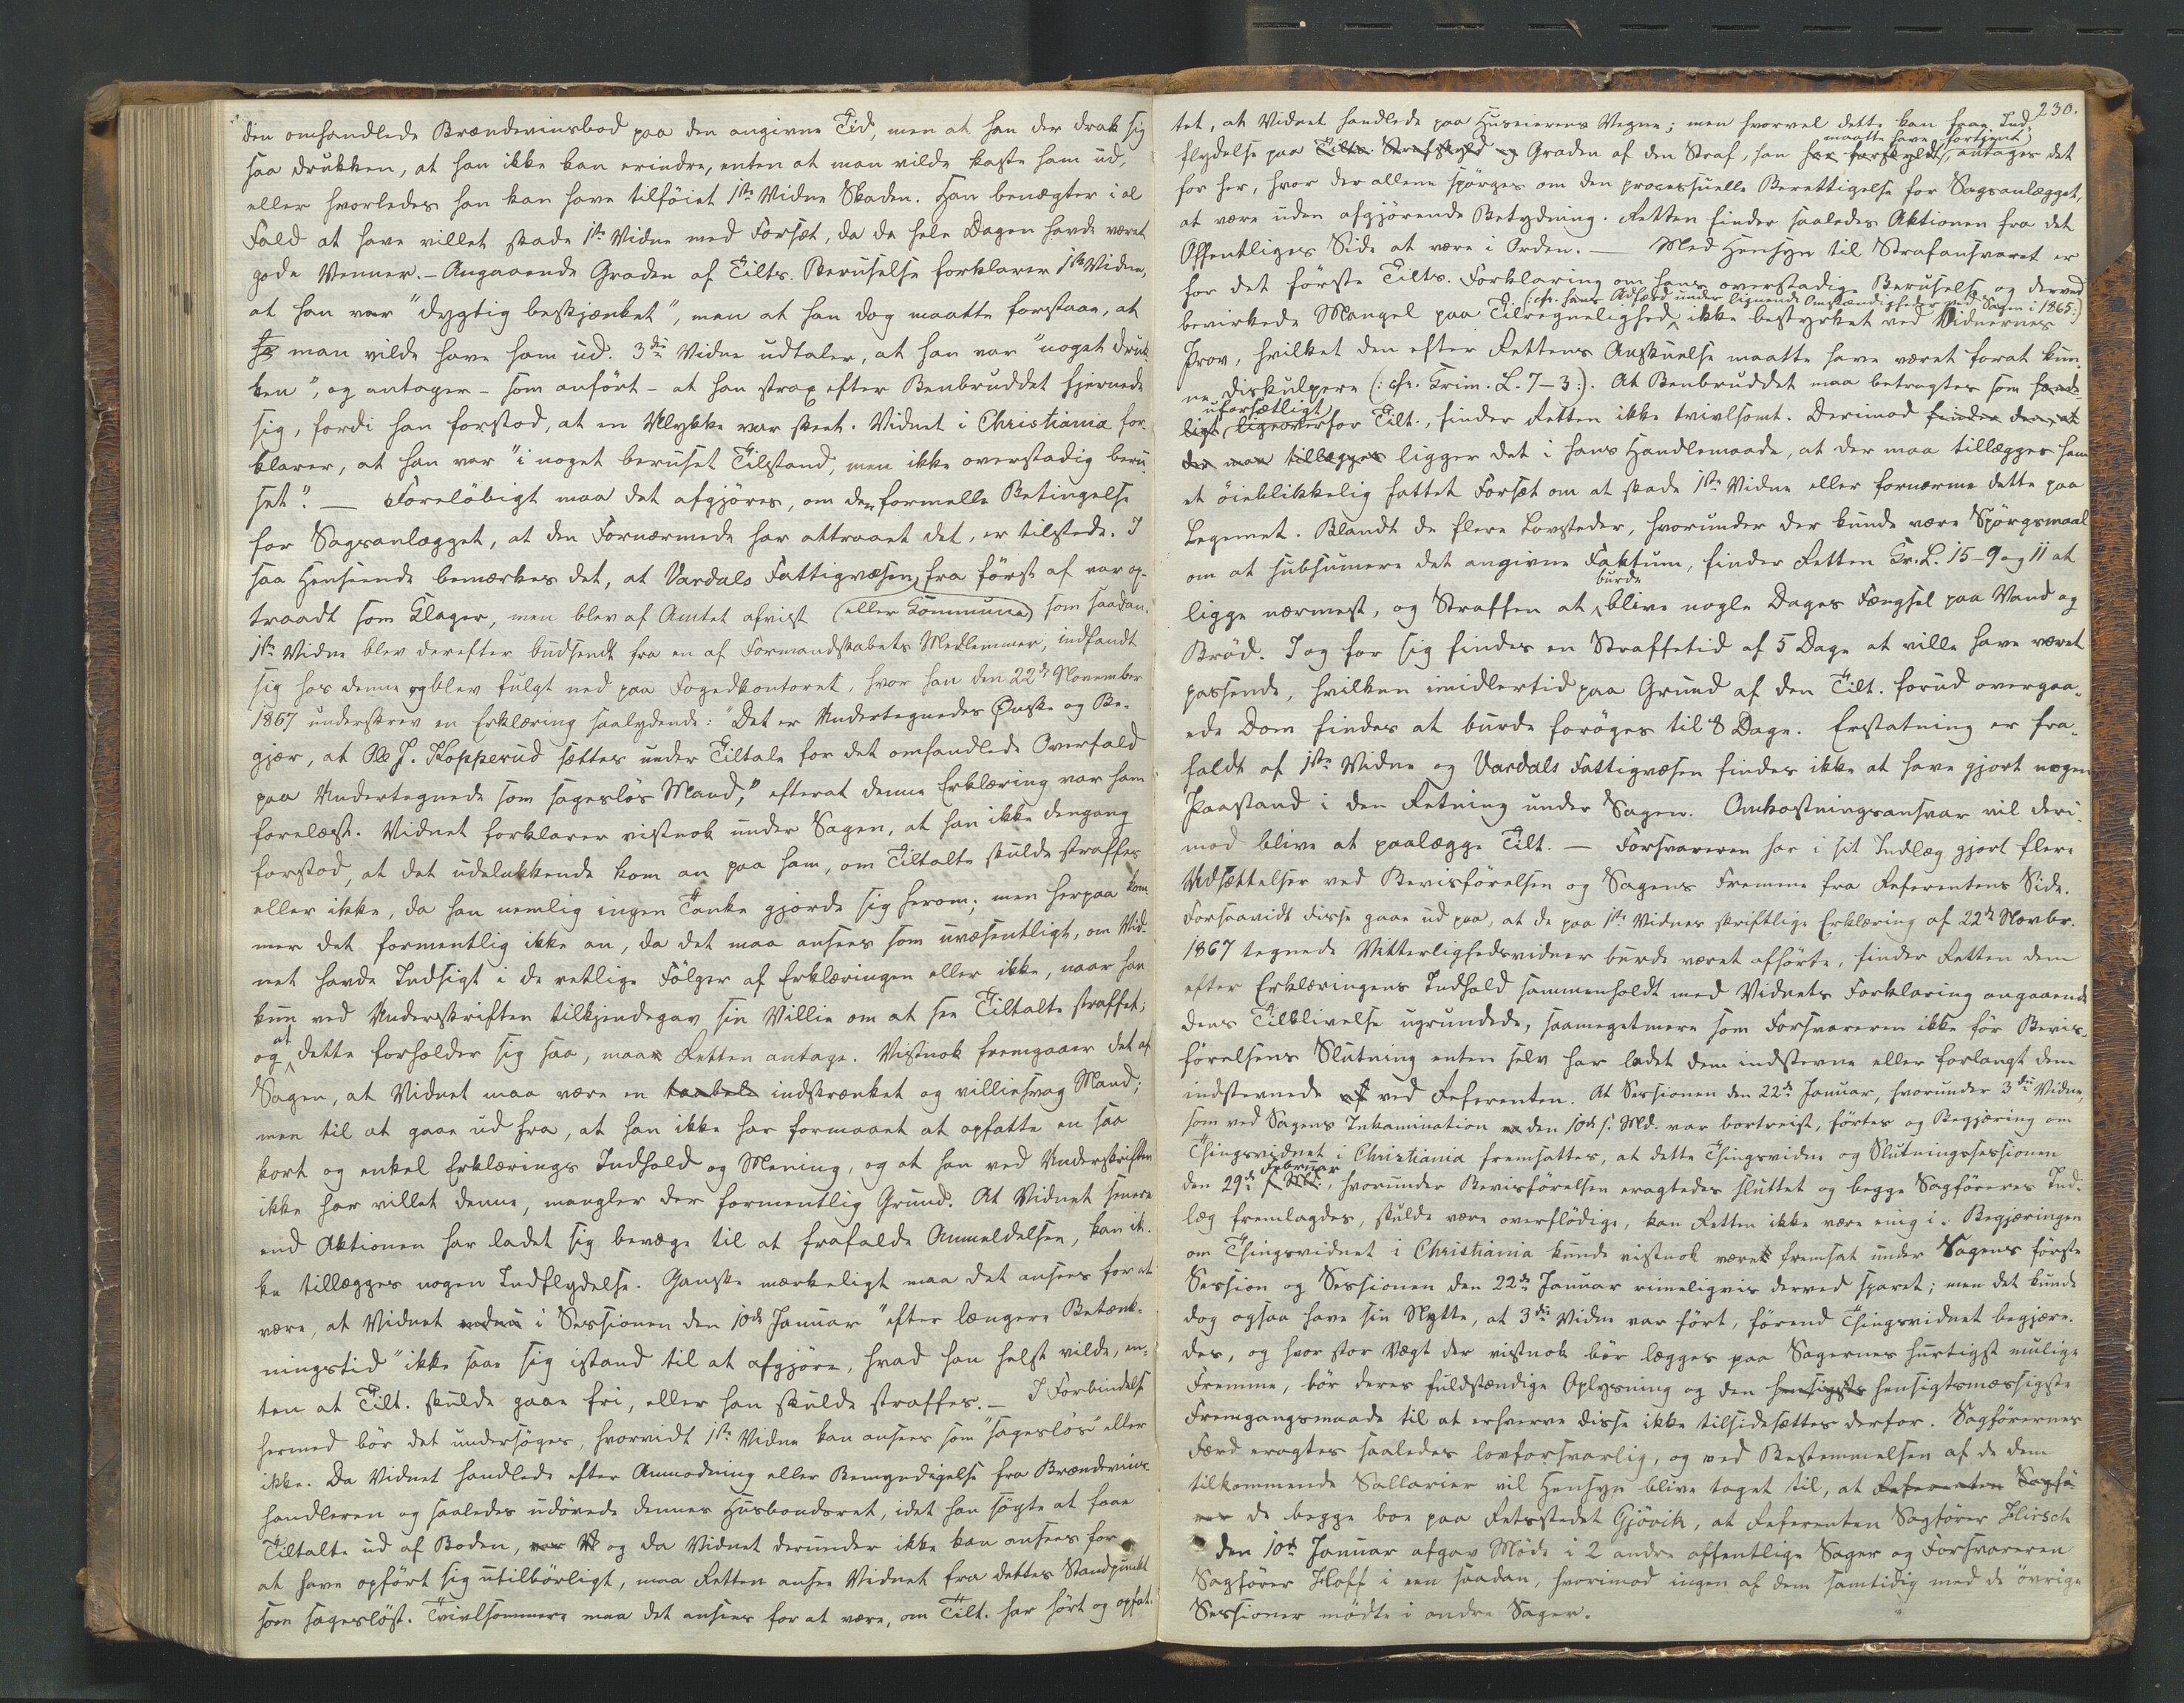 den omhandlede Brændevinsbod paa den angivne Tid, men at han der drak sig
saa drukken, at han ikke kan erindre, enten at man vilde kaste ham ud,
eller hvorledes han kan have tilföiet 1ste Vidne Skaden. Han benægter i al
Fald at have villet skade 1ste Vidne med Forsæt, da de hele Dagen havde været
gode Venner. – Angaaende Graden af Tilts. Beruselse forklarer 1ste Vidne,
at han var "dygtig beskjænket", men at han dog maatte forstaae, at
man vilde have ham ud. 3die Vidne udtaler, at han var "noget druk
ken", og antager – som anfört – at han strax efter Benbruddet fjernede
sig, fordi han forstod, at en Ulykke var skeet. Vidnet i Christiania for-
klarer, at han var "i noget beruset Tilstand, men ikke overstadig beru-
set". — Foreløbigt maa det afgjöres, om den formelle Betingelse
for Sagsanlægget, at den Fornærmede har attraaet det, er tilstede. I
saa Henseende bemærkes det, at Vardals Fattigvæsen fra först af var op-
traadt som Klager, men blev af Amtet afvist (eller Kommune) som saadan.
1ste Vidne blev derefter budsendt fra en af Formandskabets Medlemmer, indfandt
sig hos denne og blev fulgt ned paa Fogedkontoret, hvor han den 22de November
1867 underskrev en Erklæring saalydende: "Det er Undertegnedes Ønske og Be-
gjær, at Ole J. Kopperud sættes under Tiltale for det omhandlede Overfald
paa Undertegnede som sageslös Mand," efterat denne Erklæring var ham
forelæst. Vidnet forklarer vistnok under Sagen, at han ikke dengang
forstod, at det udelukkende kom an paa ham, om Tiltalte skulde straffes
eller ikke, da han nemlig ingen Tanke gjorde sig herom; men herpaa kom
mer det formentlig ikke an, da det maa ansees som uvæsentligt, om Vid-
net havde Indsigt i de retlige Fölger af Erklæringen eller ikke, naar han
kun ved Underskriften tilkjendegav sin Villie om at see Tiltalte straffet;
og at dette forholder sig saa, maa Retten antage. Vistnok fremgaaer det af
Sagen, at Vidnet maa være en taabele indskrænket og villiesvag Mand;
men til at gaae ud fra, at han ikke har formaaet at opfatte en saa
kort og enkel Erklærings Indhold og Mening, og at han ved Underskriften
ikke har villet denne, mangler der formentlig Grund. At Vidnet senere
end Aktionen har ladet sig bevæge til at frafalde Anmeldelsen, kan ik-
ke tillægges nogen Indflydelse. Ganske mærkeligt maa det ansees for at
være, at Vidnet endnu i Sessionen den 10de Januar "efter længere Betænk-
ningstid" ikke saae sig istand til at afgjöre, hvad han helst vilde, en-
ten at Tilt. skulde gaae fri, eller han skulde straffes. – I Forbindelse
hermed bör det undersöges, hvorvidt 1ste Vidne kan ansees som "sageslös" eller
ikke. Da Vidnet handlede efter Anmodning eller Bemyndigelse fra Brændevins
handleren og saaledes udövede dennes Husbondsret, idet han sögte at faae
Tiltalte ud af Boden, og da Vidnet derunder ikke kan ansees for
at have opfört sig utilbörligt, maa Retten ansee Vidnet fra dettes Standpunkt
som sageslöst. Tvivlsommere maa det ansees for at være, om Tilt. har hört og opfat-
230.
tet, at Vidnet handlede paa Huseierens Vegne; men hvorvel dette kan faae Ind-
maatte have fortjent
flydelse paa Tilts. Strafskyld og Graden af den Straf, han har forskyldt, antages det
for her, hvor der allene spörges om den processuelle Berettigelse for Sagsanlægget,
at være uden afgjörende Betydning. Retten finder saaledes Aktionen fra det
Offentliges Side at være i Orden. — Med Hensyn til Strafansvaret er
for det förste Tilts. Forklaring om hans overstadige Beruselse og derved
(: cfr. hans Adfærd under lignende Omstændigheder ved Sagen i 1865:)
bevirkede Mangel paa Tilregnelighed ikke bestyrket ved Vidnernes
Prov, hvilket den efter Rettens Anskuelse maatte have været forat kun-
ne diskulpere (: cfr. Krim. L. 7–3:). At Benbruddet maa betragtes som hænde
uforsætligt
ligt ligeoverfor Tilt., finder Retten ikke tvivlsomt. Derimod finder den, at
der maa tillægges ligger det i hans Handlemaade, at der maa tillægges ham
et öieblikkelig fattet Forsæt om at skade 1ste Vidne eller fornærme dette paa
Legemet. Blandt de flere Lovsteder, hvorunder der kunde være Spörgsmaal
om at subsumere det angivne Faktum, finder Retten Kr. L. 15–9 og 11 at
burde
ligge nærmest, og Straffen at blive nogle Dages Fængsel paa Vand og
Bröd. I og for sig findes en Straffetid af 5 Dage at ville have været
passende, hvilken imidlertid paa Grund af den Tilt. forud overgaa-
ede Dom findes at burde foröges til 8 Dage. Erstatning er fra-
faldt af 1ste Vidne og Vardals Fattigvæsen findes ikke at have gjort nogen
Paastand i den Retning under Sagen. Omkostningsansvar vil deri-
mod blive at paalægge Tilt. — Forsvareren har i sit Indlæg gjort flere
Udsættelser ved Bevisförelsen og Sagens Fremme fra Referentens Side.
Forsaavidt disse gaae ud paa, at de paa 1ste Vidnes skriftlige Erklæring af 22de Novbr.
1867 tegnede Vitterlighedsvidner burde været afhörte, finder Retten dem
efter Erklæringens Indhold sammenholdt med Vidnets Forklaring angaaende
dens Tilblivelse ugrundede, saameget mere som Forsvareren ikke för Bevis-
förelsens Slutning enten selv har ladet dem indstevne eller forlangt dem
indstevnede ved Referenten. At Sessionen den 22de Januar, hvorunder 3die Vidne,
som ved Sagens Inkamination den 10de s. Md. var bortreist, förtes og Begjæring om
Thingsvidnet i Christiania fremsattes, at dette Thingsvidne og Slutningssessionen
Februar
den 29de s. Md., hvorunder Bevisförelsen eragtedes sluttet og begge Sagföreres Ind-
læg fremlagdes, skulde være overflödige, kan Retten ikke være enig i. Begjæringen
om Thingsvidnet i Christiania kunde vistnok været fremsat under Sagens förste
Session og Sessionen den 22de Januar rimeligvis derved sparet; men det kunde
dog ogsaa have sin Nytte, at 3die Vidne var fört, förend Thingsvidnet begjære-
des, og hvor stor Vægt der vistnok bör lægges paa Sagernes hurtigst mulige
Fremme, bör deres fuldstændige Oplysning og den hensigts hensigtsmæssigste
Fremgangsmaade til at erhverve disse ikke tilsidesættes derfor. Sagförernes
Færd eragtes saaledes lovforsvarlig, og ved Bestemmelsen af de dem
tilkommende Sallarier vil Hensyn blive taget til, at Referenten Sagfö
rer de begge boe paa Retsstedet Gjövik, at Referenten Sagförer Hirsch
den 10de Januar afgav Möde i 2 andre offentlige Sager og Forsvareren
Sagförer Hoff i een saadan, hvorimod ingen af dem samtidig med de övrige
Sessioner mödte i andre Sager.